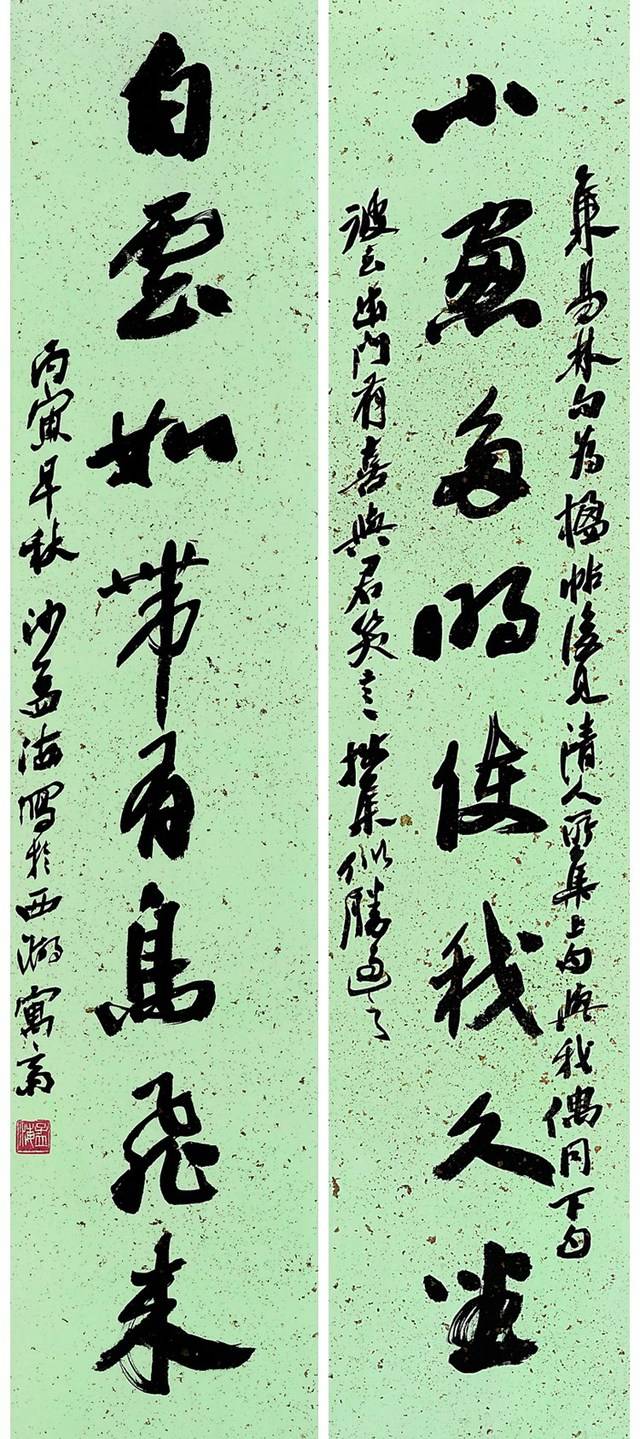 集易林句為楹帖後見清人所集上句與我偶同下句
小窗多明使我久坐
彼云出門有喜與君笑言拙集似勝過之
白雲如帶有鳥飛来
丙寅早秋沙孟海寫於西湖寓齋
孟海